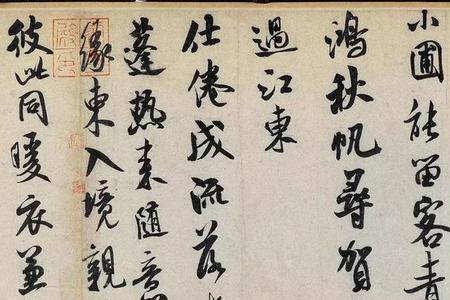 小圃能留客青
鴻秋帆尋賀
過江東
仕倦成流落
蓬熱来随意
緣東入境親
彼此同暖衣兼